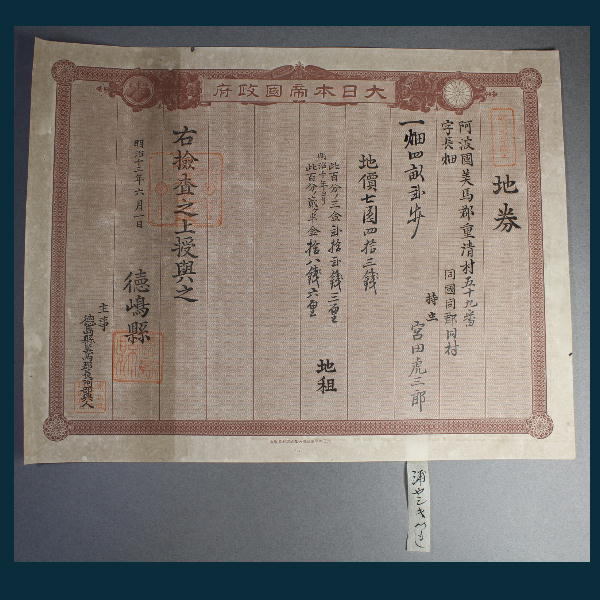 大日本帝國政府
地券
阿波國美馬郡重清村五十九番
字長畑
同國同郡同村
持主 宮田虎三郎
一畑四畝弐歩
地價七圓四拾三錢
此百分ノ三金弐拾弐錢三厘
明治十年ヨリ
此百分ノ貳ヶ半金拾八錢六厘
地租
右撿査之上授與之
明治十三年六月一日
德嶋縣
主事
德島縣美馬郡長